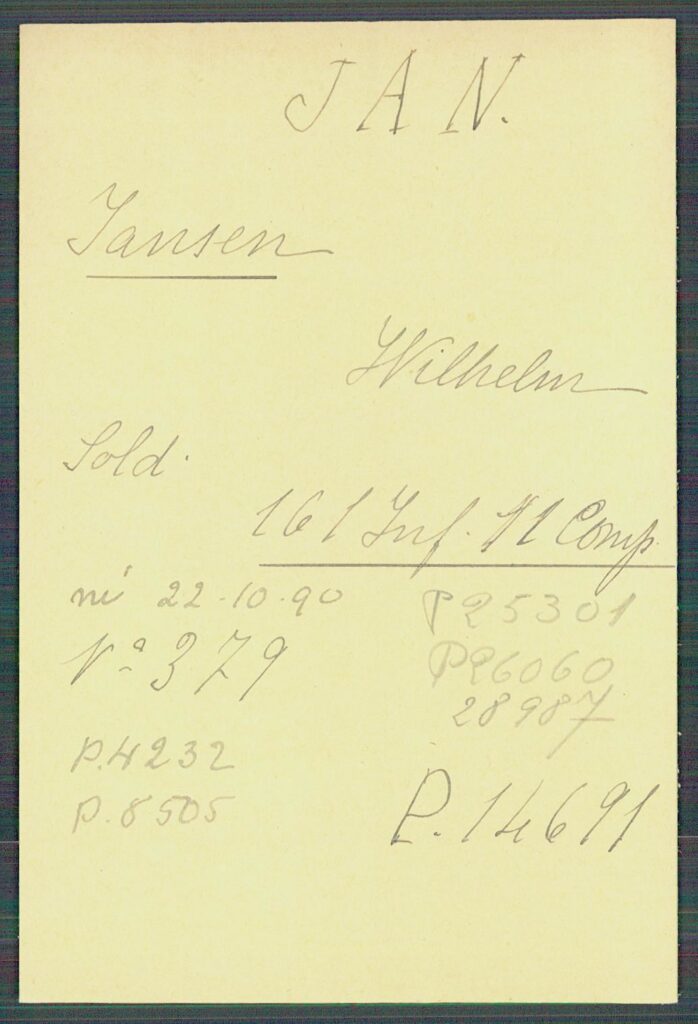 JAN.
Jansen
Wilhelm
Sold.
161 Inf. 11 Comp
né 22.10.90
P 25301
Nº 379
P 26060
28987
P. 4232
P. 8505
P. 14691